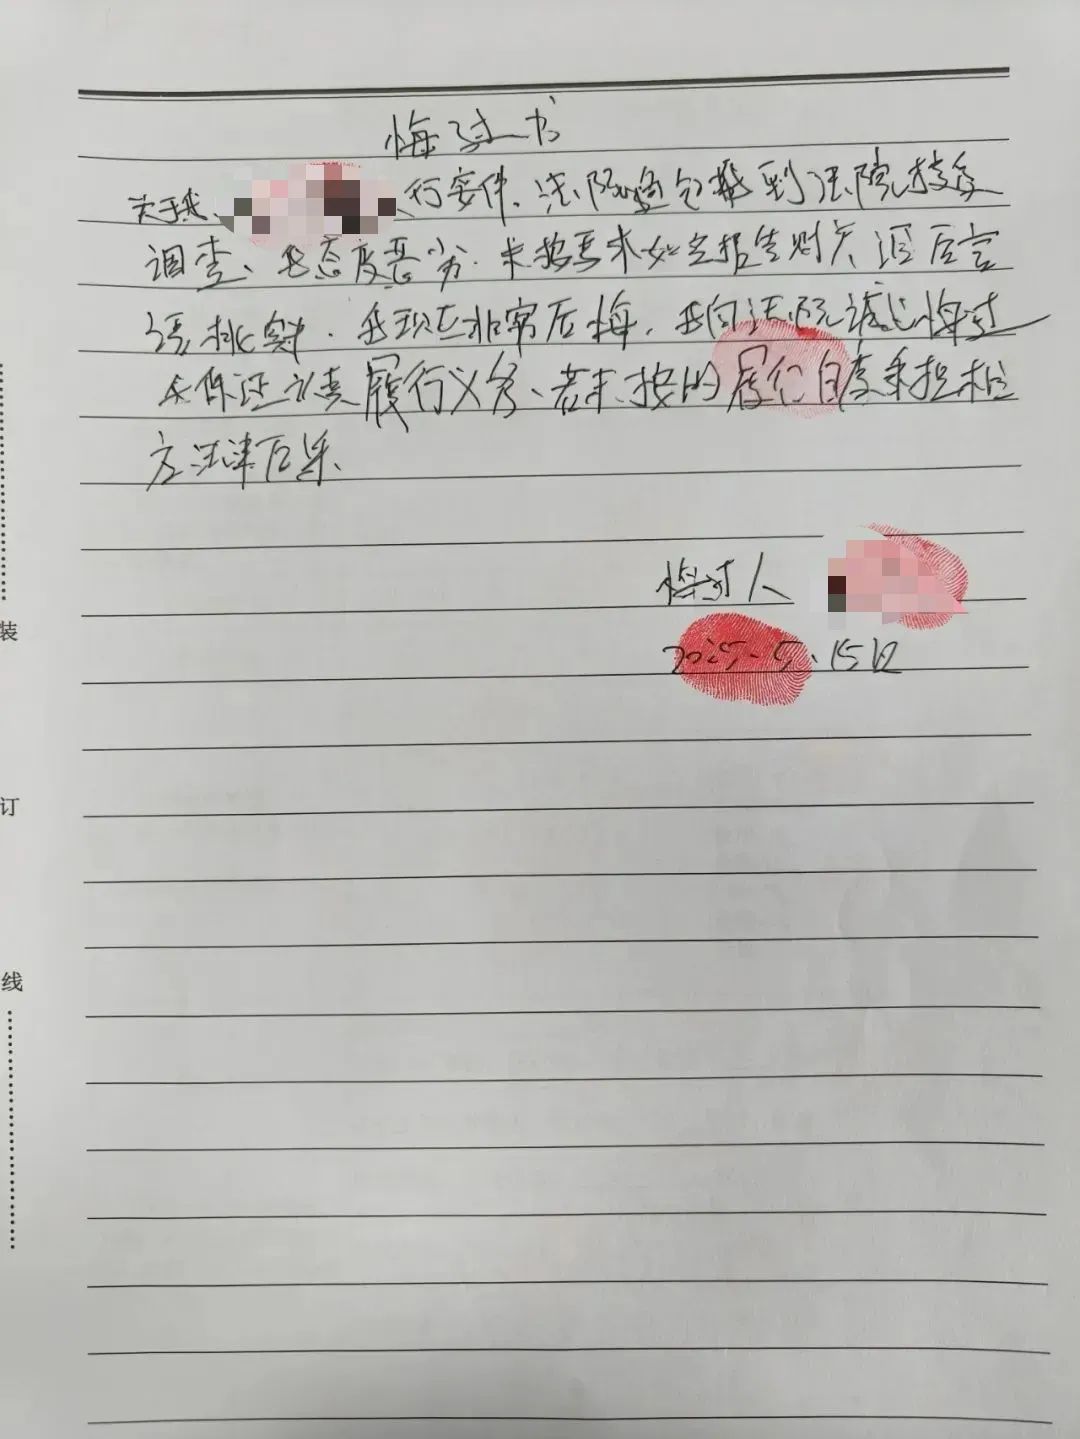 悔过书
关于我 行案件、法院通知我到法院接受
调查、我态度恶劣.未按要求如实报告财产
语挑衅.我现在非常后悔,我向法院诚心悔过
保证认真履行义务、若未按时履行自愿承担相
应法律后果、
悔过人
2025.5.15日
装
订
线